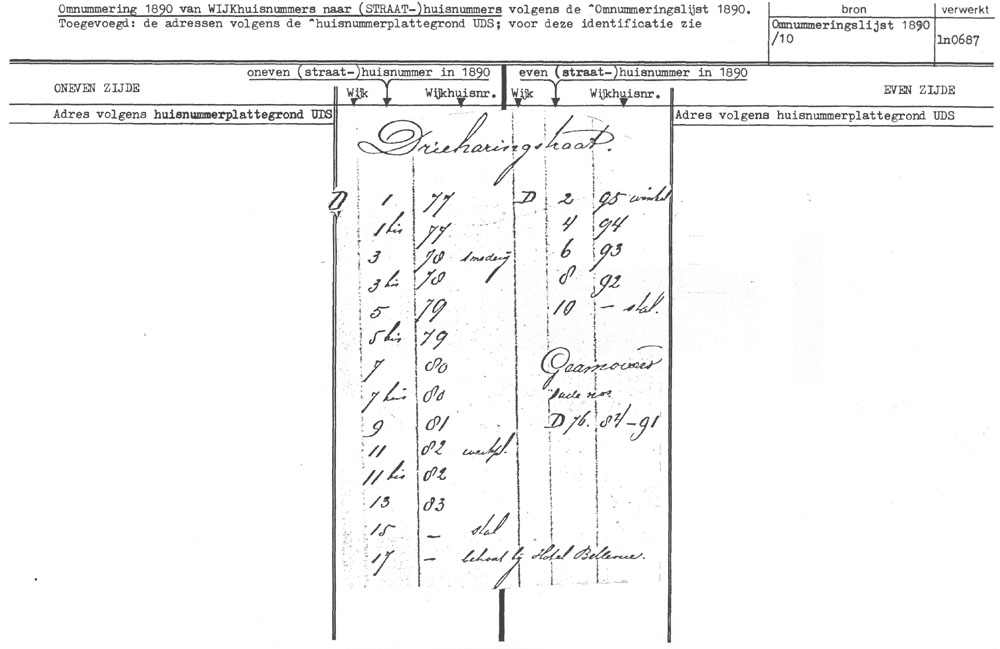 Omnummering 1890 van WIJKhuisnummers naar (STRAAT-)huisnummers volgens de ^Omnummeringslijst 1890.
Toegevoegd: de adressen volgens de ^huisnummerplattegrond UDS; voor deze identificatie zie
bron
Omnummeringslijst 1890
/10
verwerkt
ln0687
oneven (straat-)huisnummer in 1890
even (straat-)huisnummer in 1890
ONEVEN ZIJDE
Wijk Wijkhuisnr.
Wijk Wijkhuisnr.
EVEN ZIJDE
Adres volgens huisnummerplattegrond UDS
Adres volgens huisnummerplattegrond UDS
Drieharingstraat.
D 1 77
1 bis 77
3 78 smederij
3 bis 78
5 79
5 bis 79
7 80
7 bis 80
9 81
11 82 werkpl.
11 bis 82
13 83
15 – stal
17 – behoort bij Hotel Bellevue.
D 2 95 winkel
4 94
6 93
8 92
10 – stal.
Geamoveerd
oude nos
D 76. 84–91